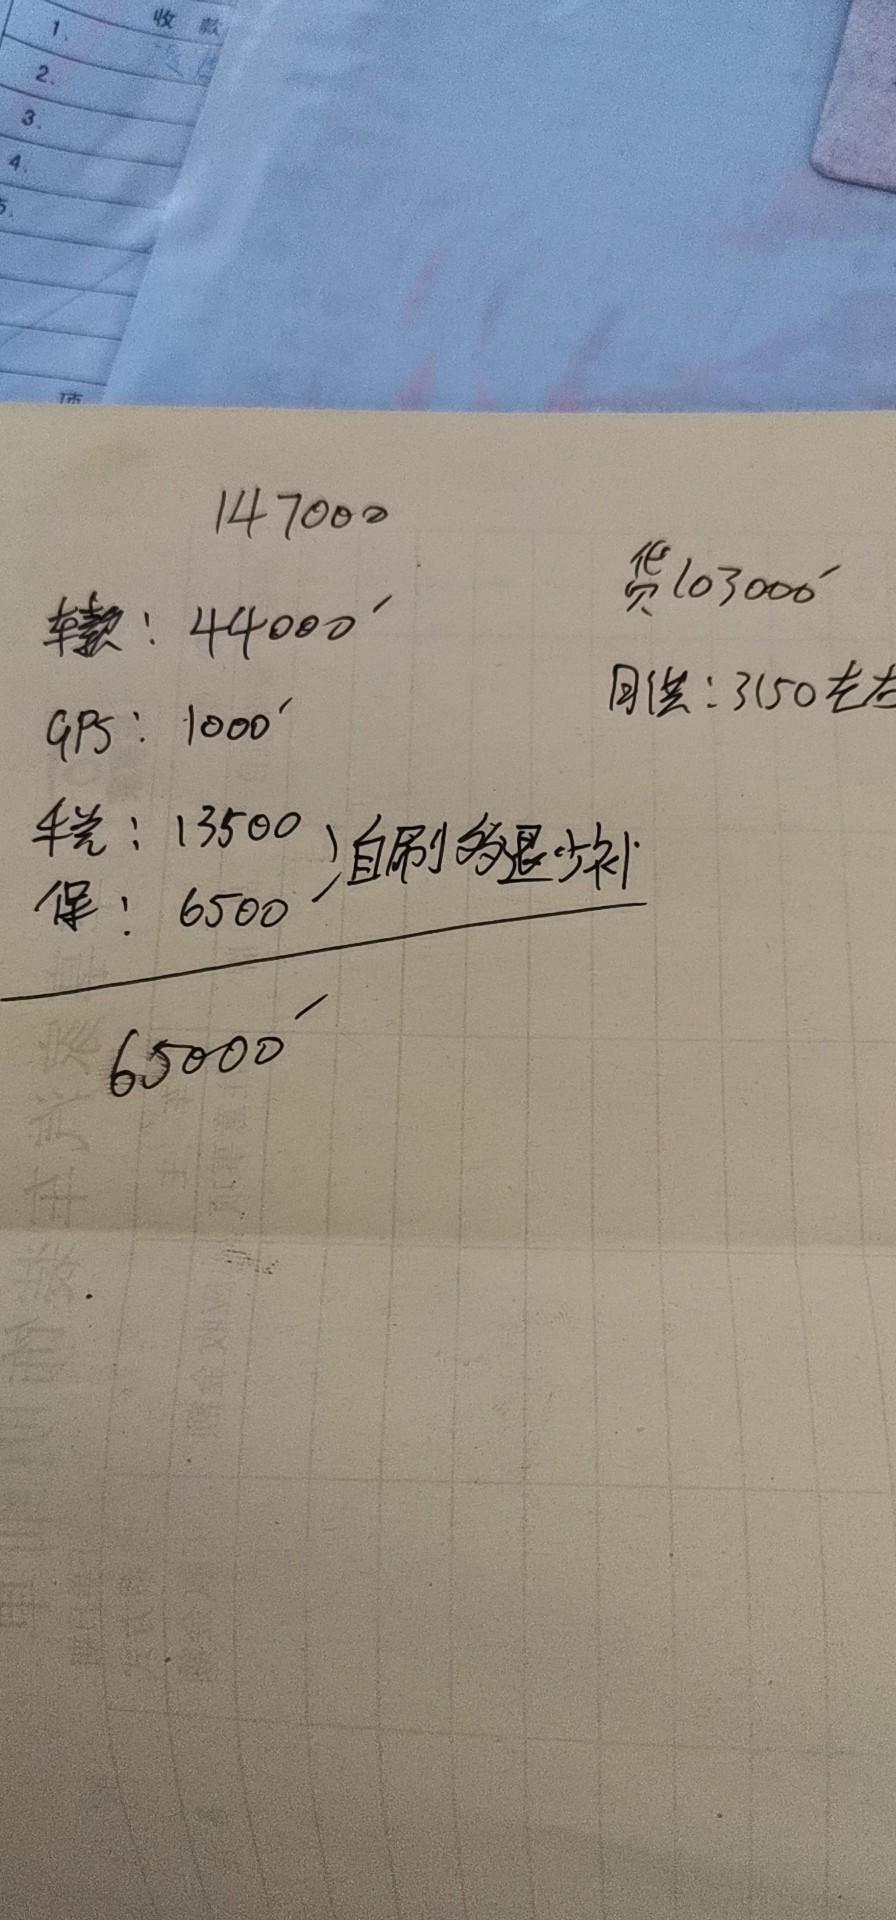 收 款
1.
2.
3.
4.
5.
项
147000
车款：44000
贷103000
GPS：1000
月供：3150左右
车税：13500
自刷多退少补
保：6500
65000